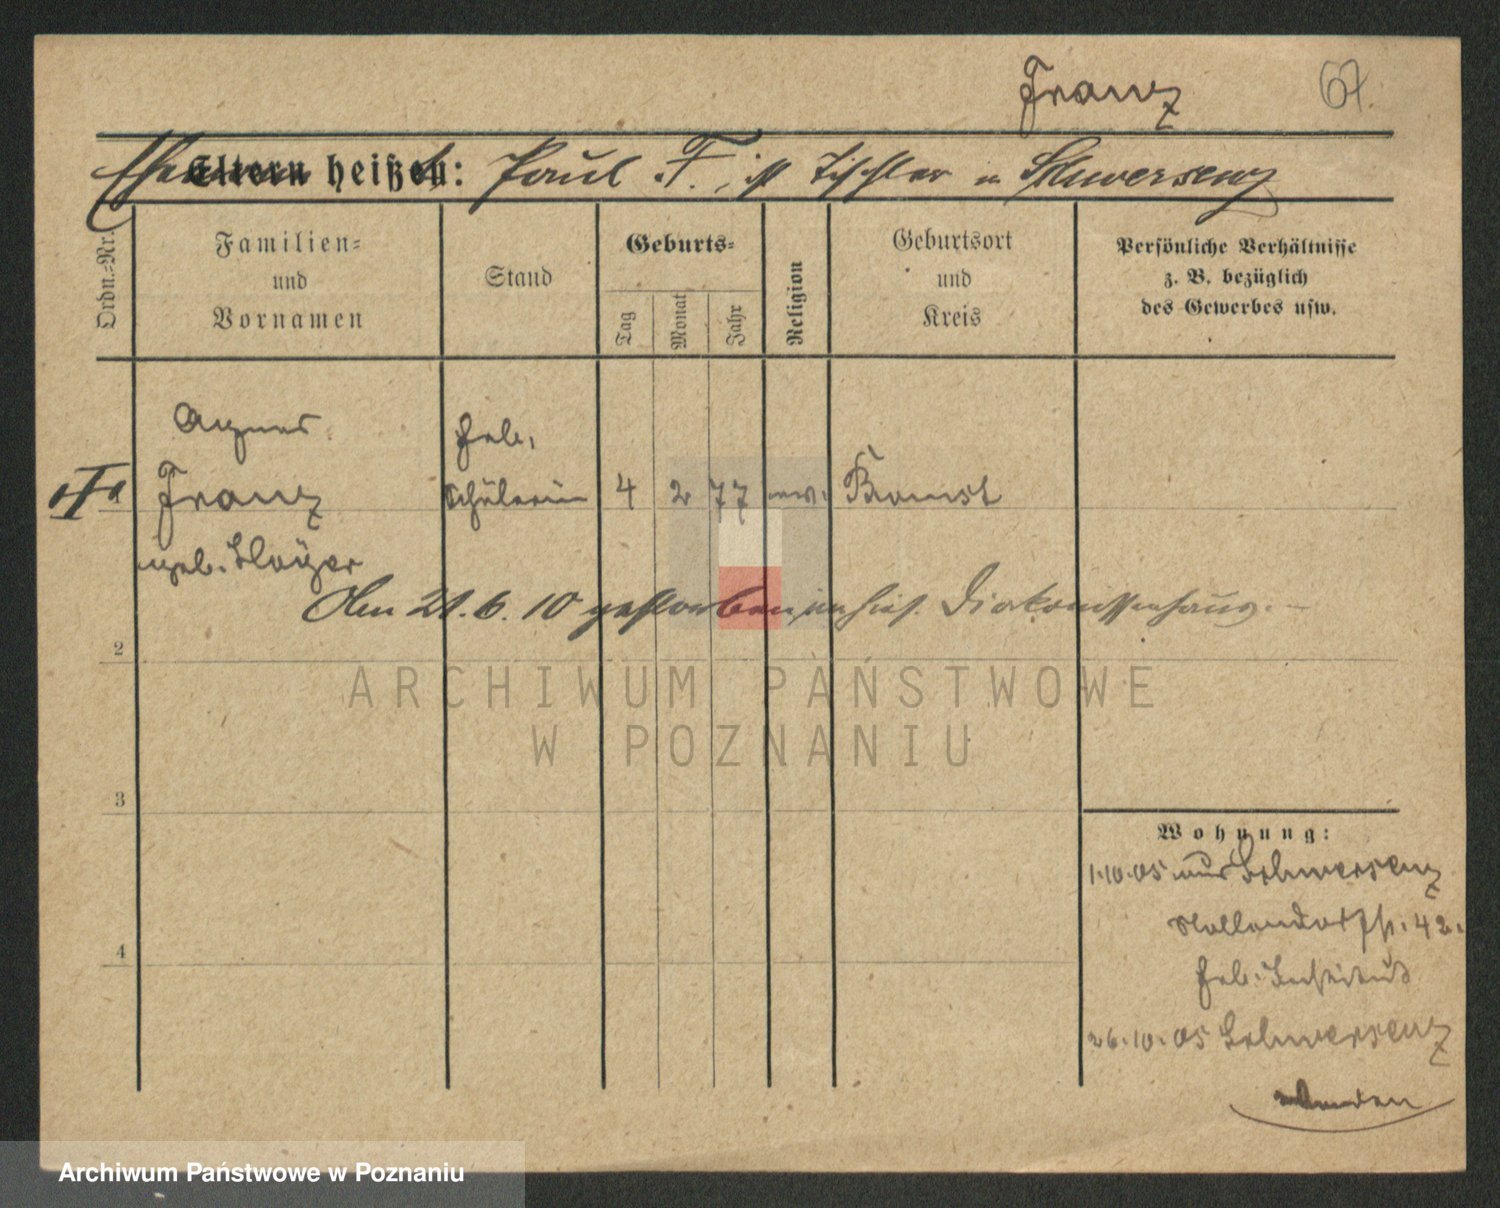 Franz 67.
Eltern heißen: Paul F., ist Tischler in Schwersenz
Ordn.-Nr.
Familien-
und
Vornamen
Stand
Geburts-
Tag
Monat
Jahr
Religion
Geburtsort
und
Kreis
Persönliche Verhältnisse
z. B. bezüglich
des Gewerbes usw.
Agnes
Franz
geb.
Heb.
Schülerin
4 2 77 ev. Bomst
Am 21. 6. 10 gestorben im hies. Diakonissenhaus.
2
ARCHIWUM PAŃSTWOWE
W POZNANIU
3
4
Wohnung:
1.10.05 aus Schwersenz
42.
Heb. Institut
26.10.05 Schwersenz
Archiwum Państwowe w Poznaniu